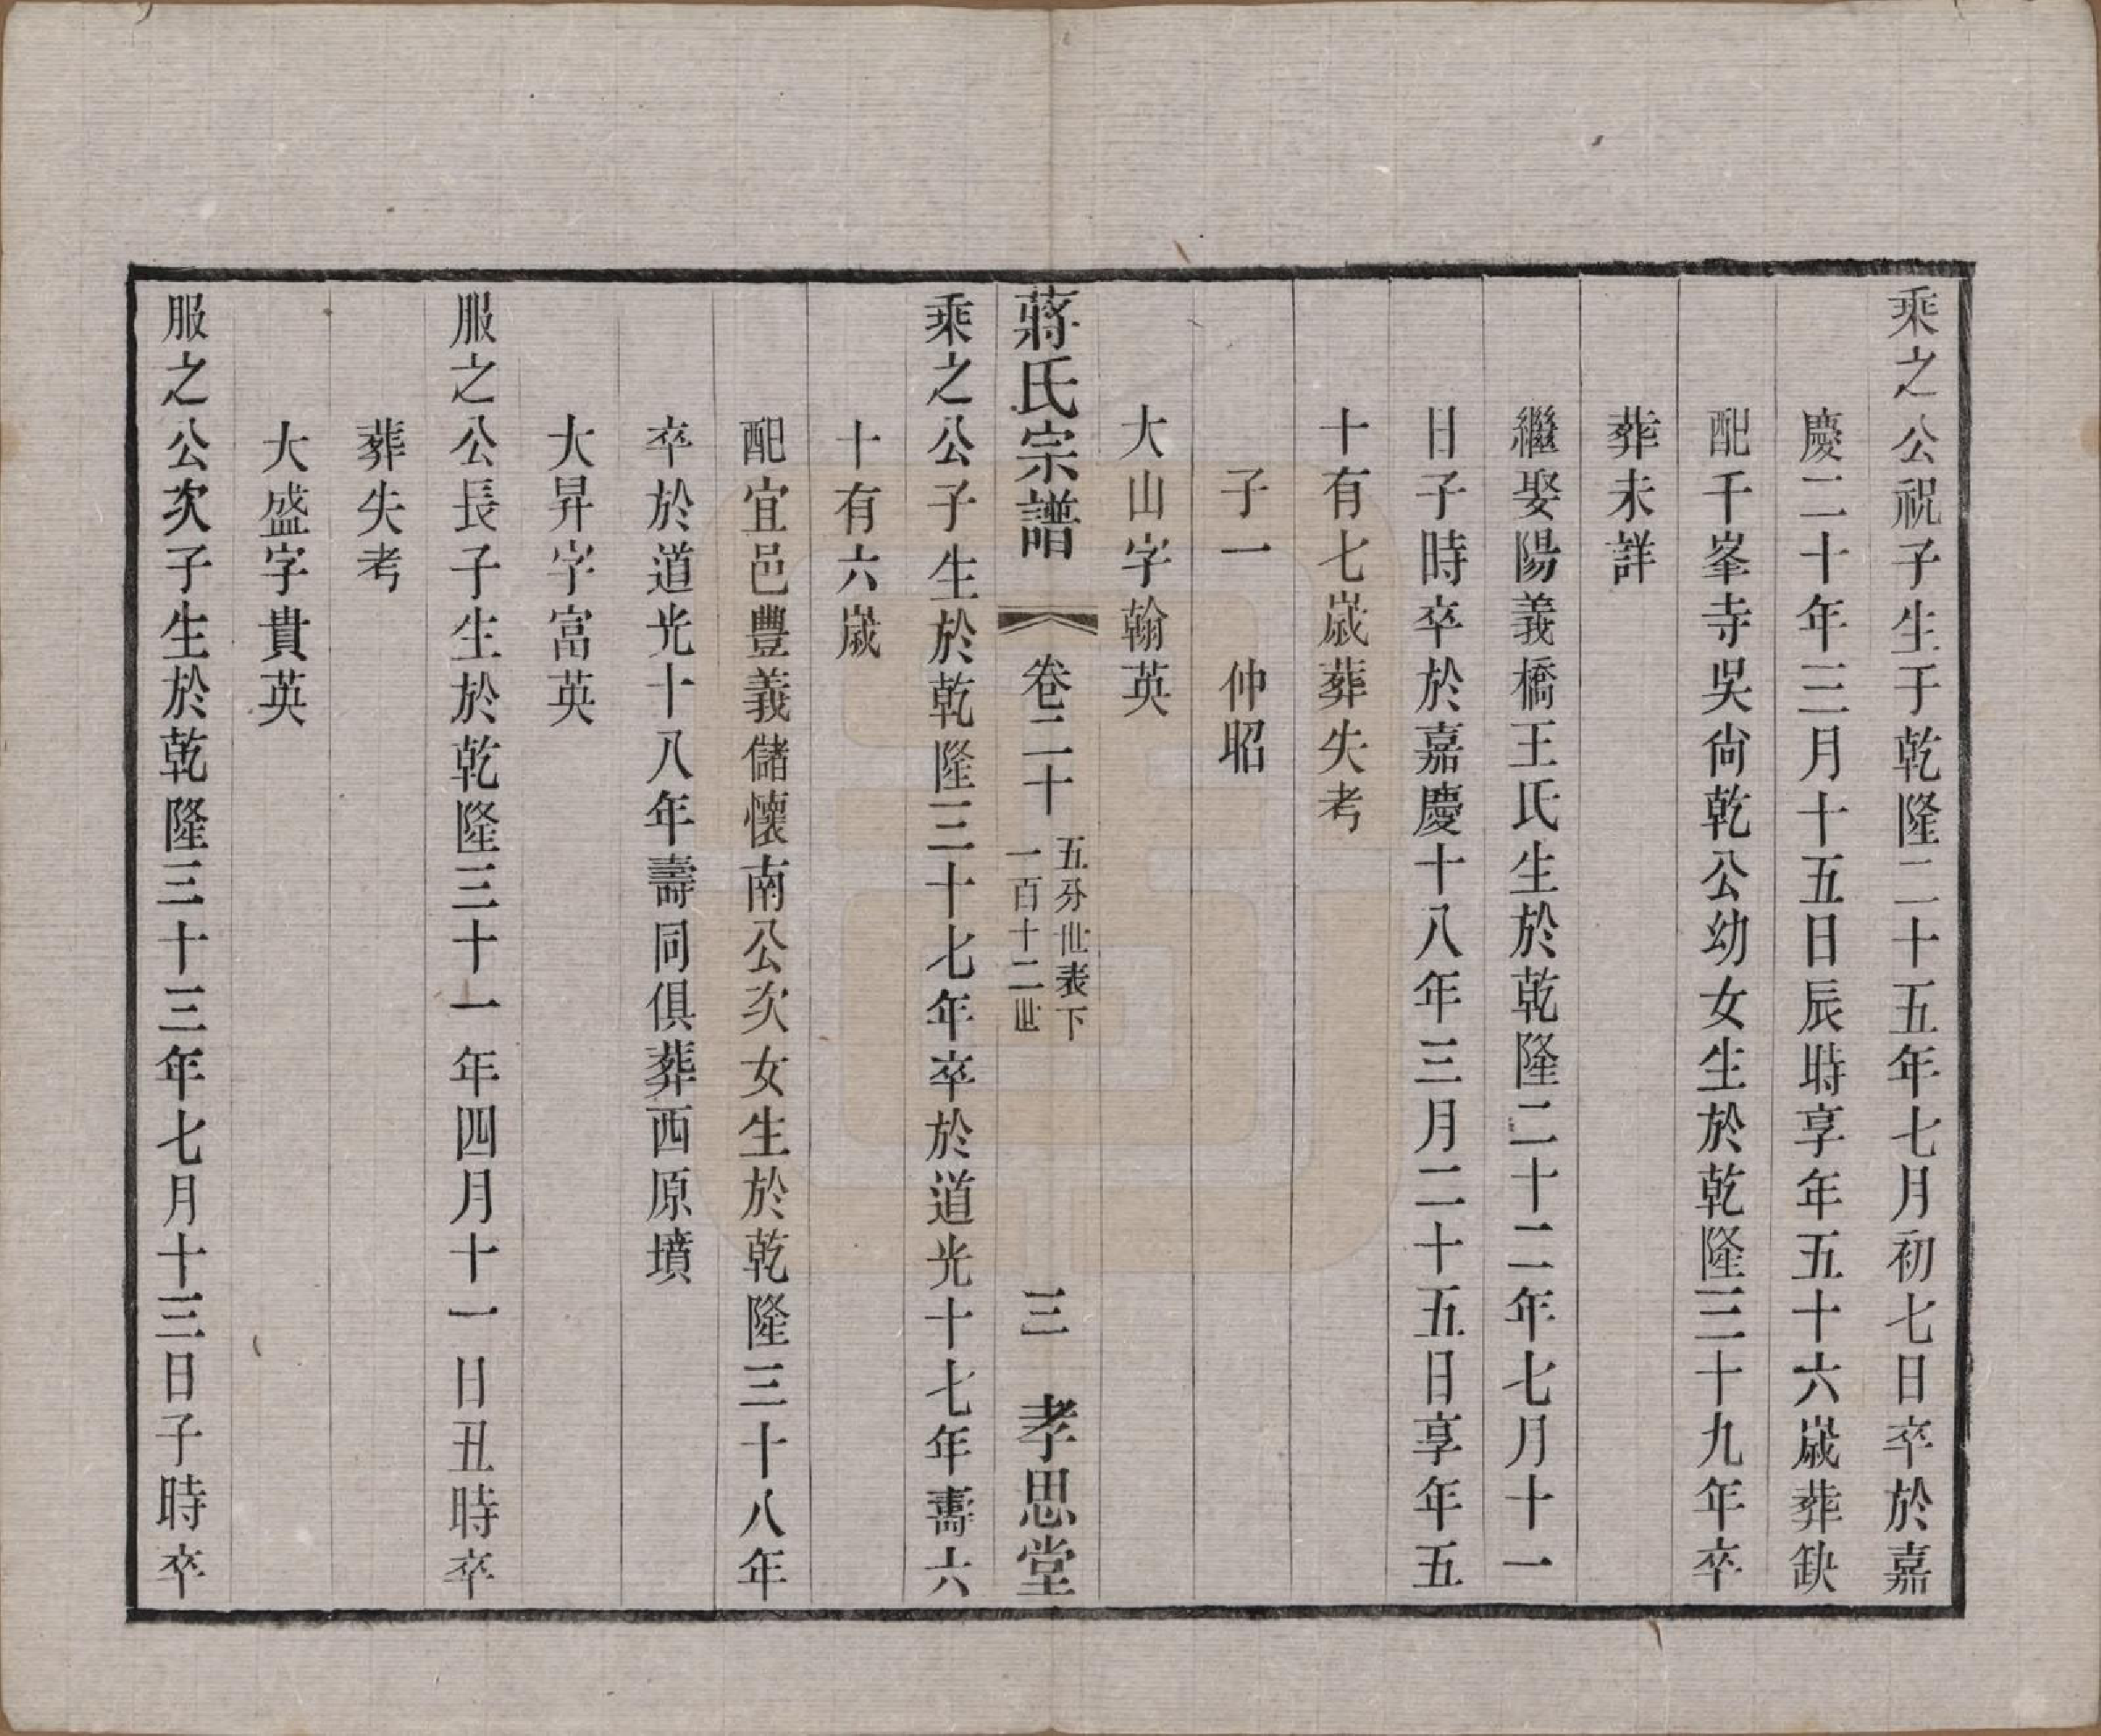 乘之公祝子生于乾隆二十五年七月初七日卒於嘉
慶二十年三月十五日辰時享年五十六歲葬缺
配千峯寺吳尙乾公幼女生於乾隆三十九年卒
葬未詳
繼娶陽義橋王氏生於乾隆二十二年七月十一
日子時卒於嘉慶十八年三月二十五日享年五
十有七歲葬失考
子一　仲昭
大山字翰英
蔣氏宗譜　卷二十　五分世表下　一百十二世　三　孝思堂
乘之公子生於乾隆三十七年卒於道光十七年壽六
十有六歲
配宜邑豐義儲懷南公次女生於乾隆三十八年
卒於道光十八年壽同俱葬西原墳
大昇字富英
服之公長子生於乾隆三十一年四月十一日丑時卒
葬失考
大盛字貴英
服之公次子生於乾隆三十三年七月十三日子時卒